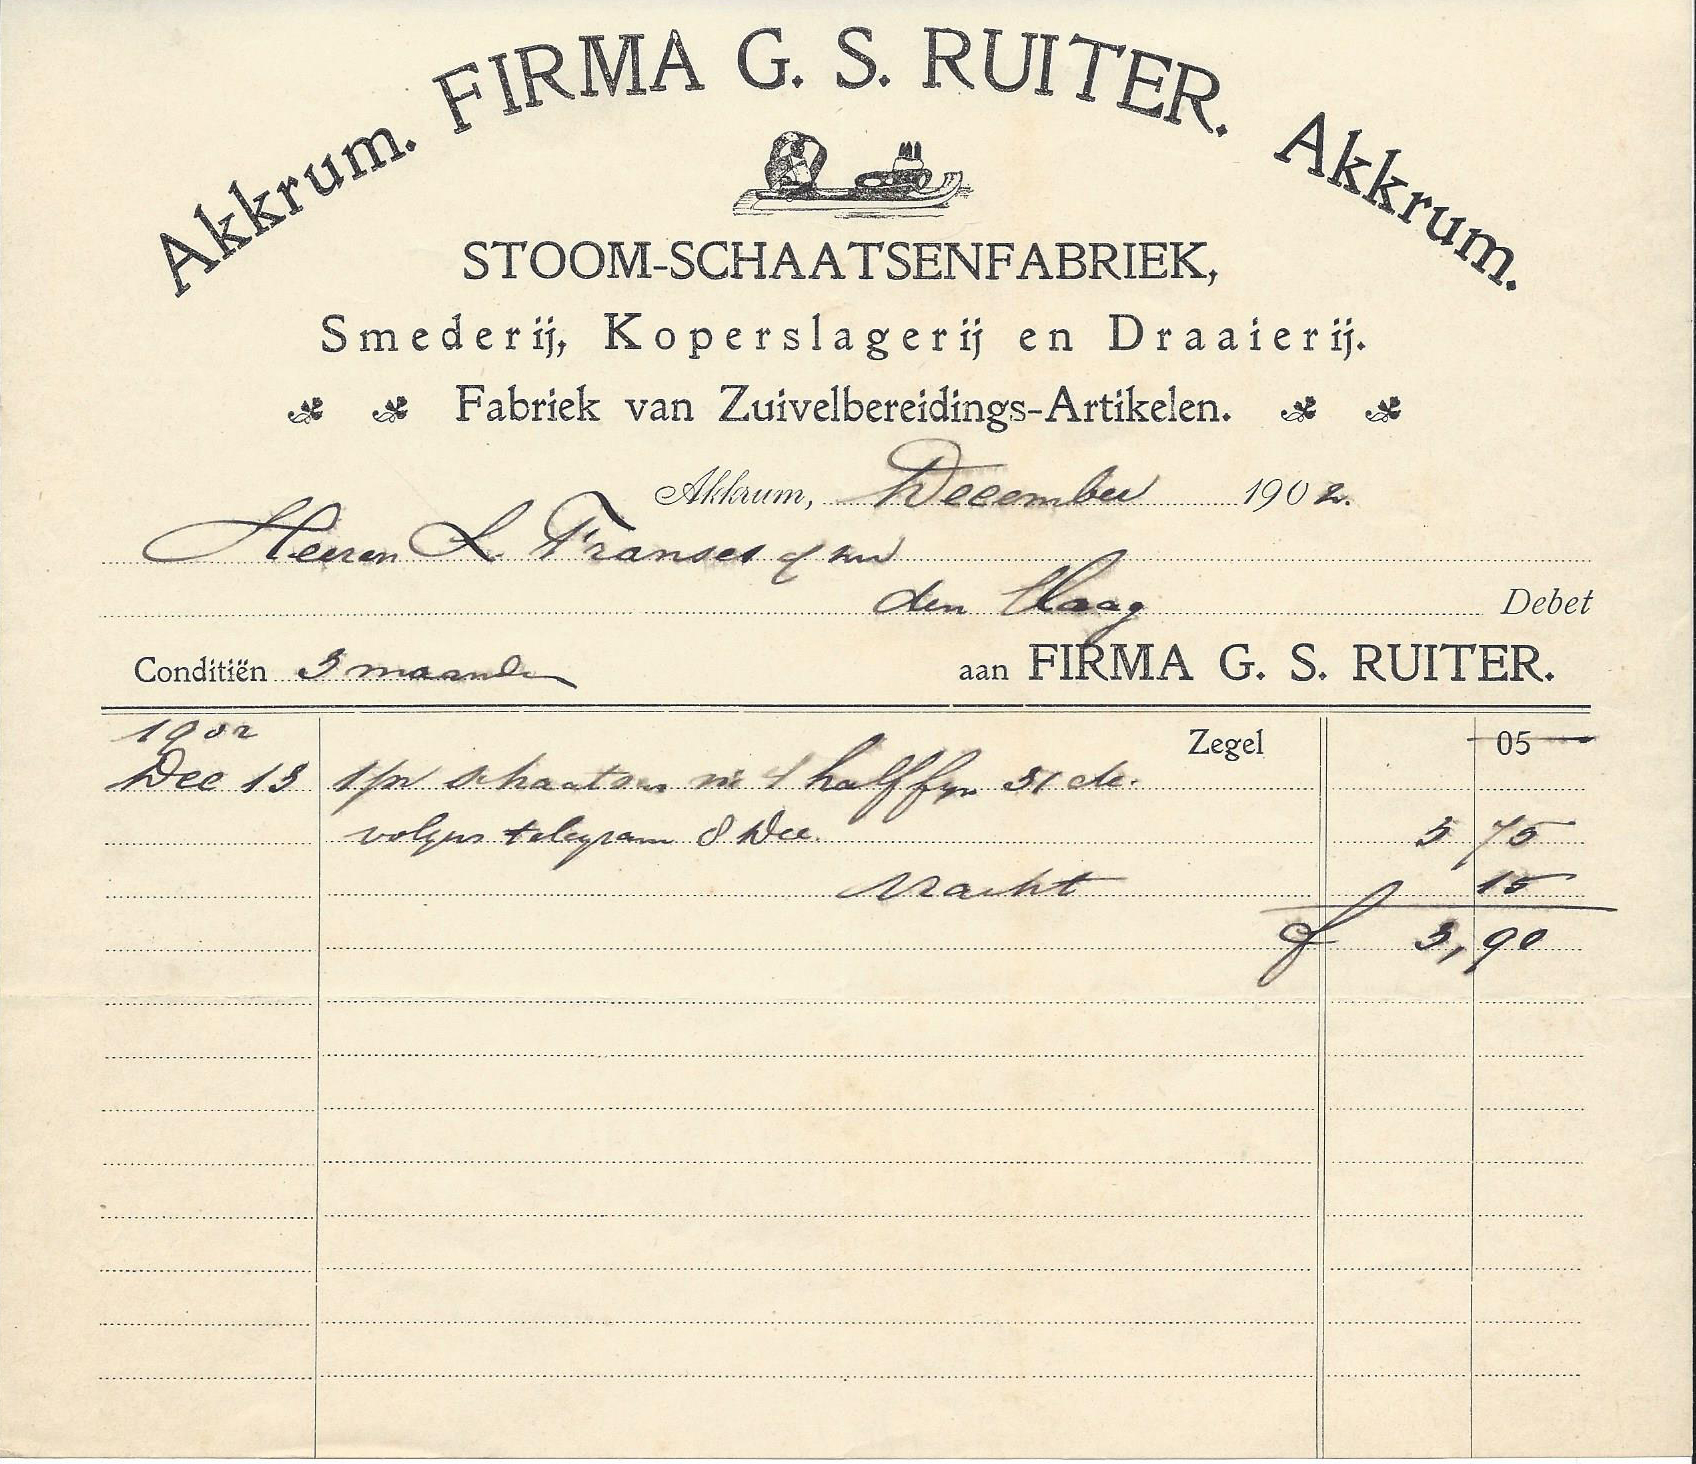 Akkrum. FIRMA G. S. RUITER. Akkrum.
STOOM-SCHAATSENFABRIEK,
Smederij, Koperslagerij en Draaierij.
Fabriek van Zuivelbereidings-Artikelen.
Akkrum, December 1902.
Heeren L Franses &
den Haag Debet
Conditiën 3 maanden aan FIRMA G. S. RUITER.
1902 Zegel 05
Dec 13 1 pr schaatsen halffyn 31 cte.
volgens telegram 8 Dec. 3 75
Vracht 15
f 3,90